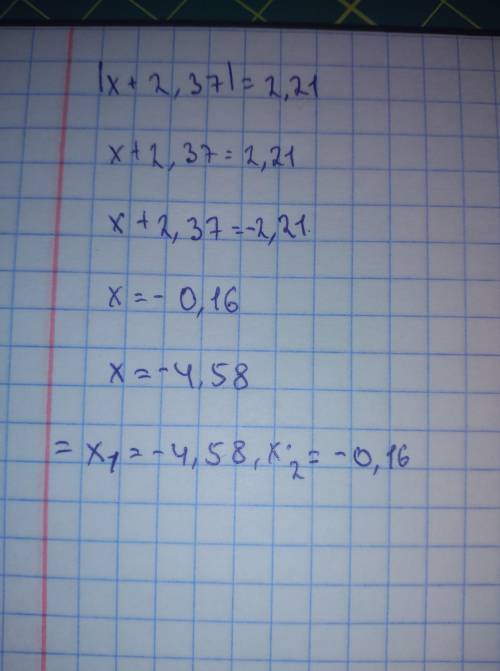 |x + 2,37| = 2,21
x + 2,37 = 2,21
x + 2,37 = -2,21
x = - 0,16
x = -4,58
= x₁ = -4,58, x₂ = -0,16